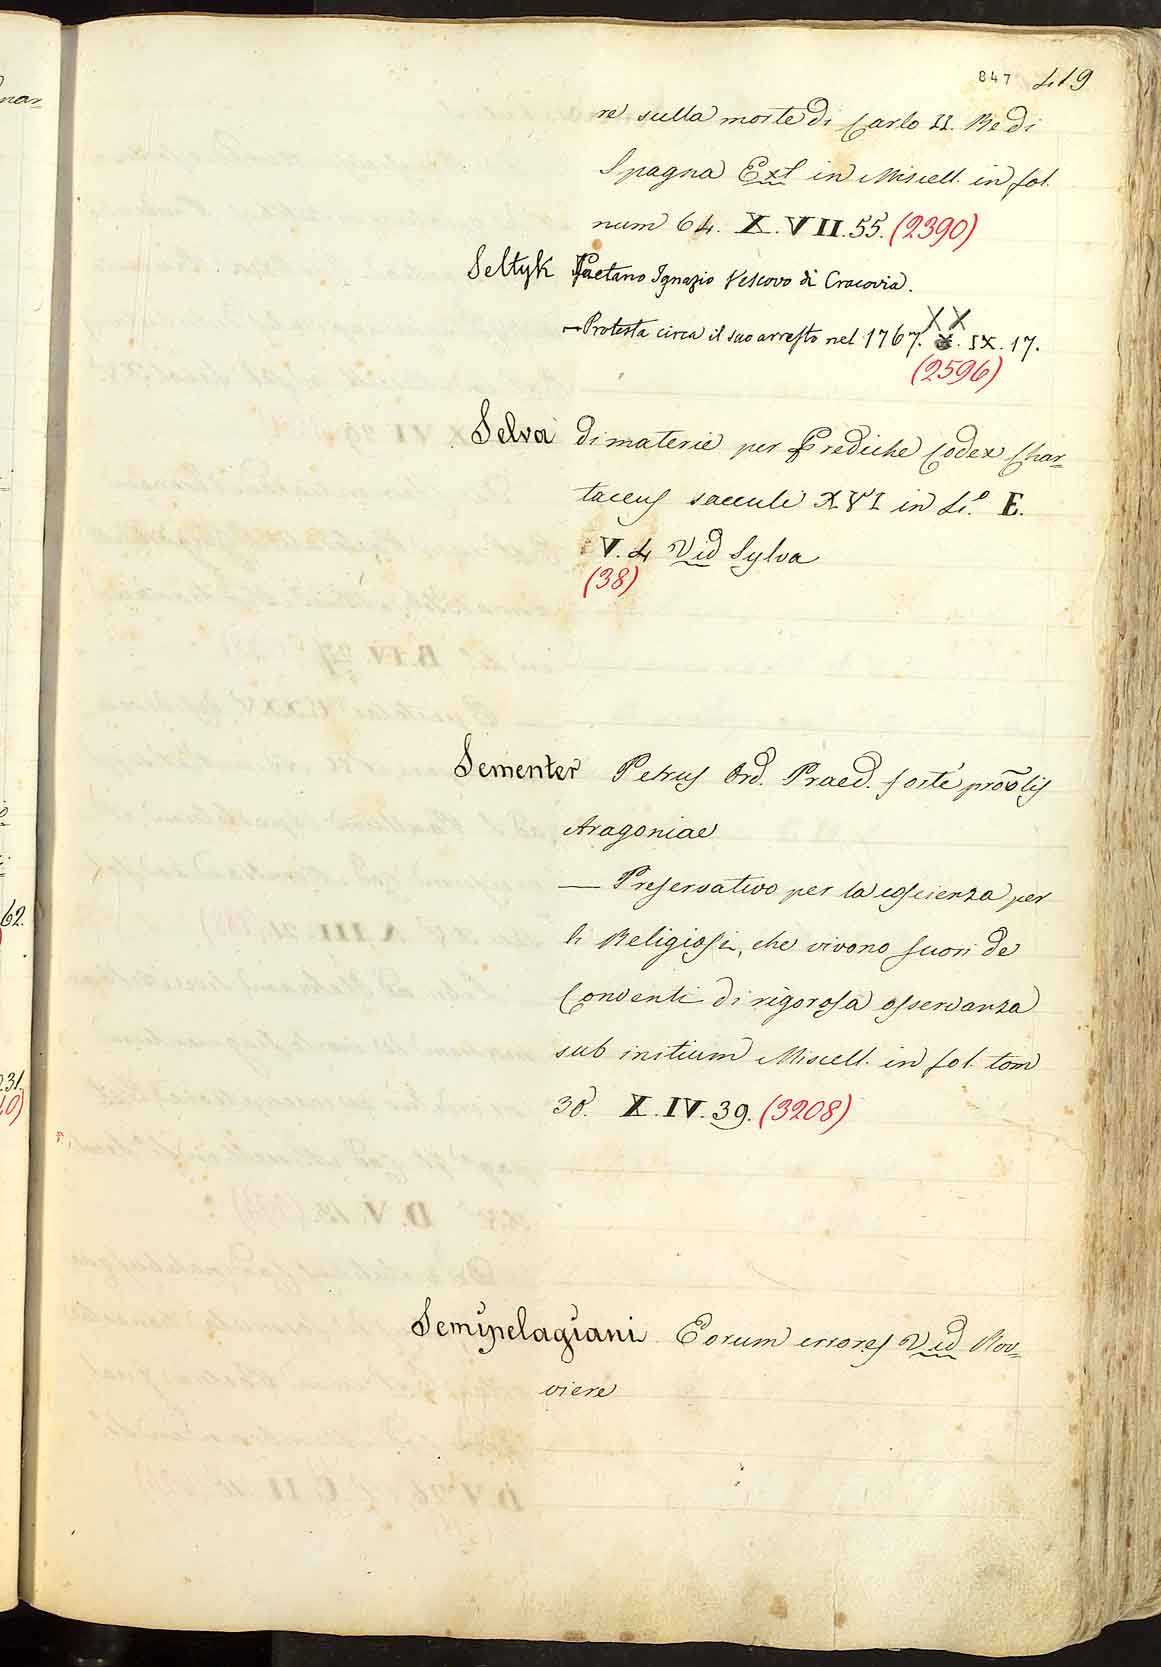 847 419
re sulla morte di Carlo II. Re di
Spagna Ext in Miscell. in fol.
num 64. X. VII. 55. (2390)
Seltyk Gaetano Ignazio Vescovo di Cracovia.
XX
— Protesta circa il suo arresto nel 1767. IX. 17.
(2596)
Selva di materie per Prediche Codex Char=
taceus saeculi XVI in 4.o E.
V. 4 Vid Sylva
(38)
Sementer Petrus Ord. Praed. forte prõolis
Aragoniae
— Preservativo per la coscienza per
li Religiosi, che vivono fuori de
Conventi di rigorosa osservanza
sub initium Miscell. in fol. tom
38. X. IV. 39. (3208)
Semipelagiani Eorum errores Vid Rou=
viere
62.
231.
40)